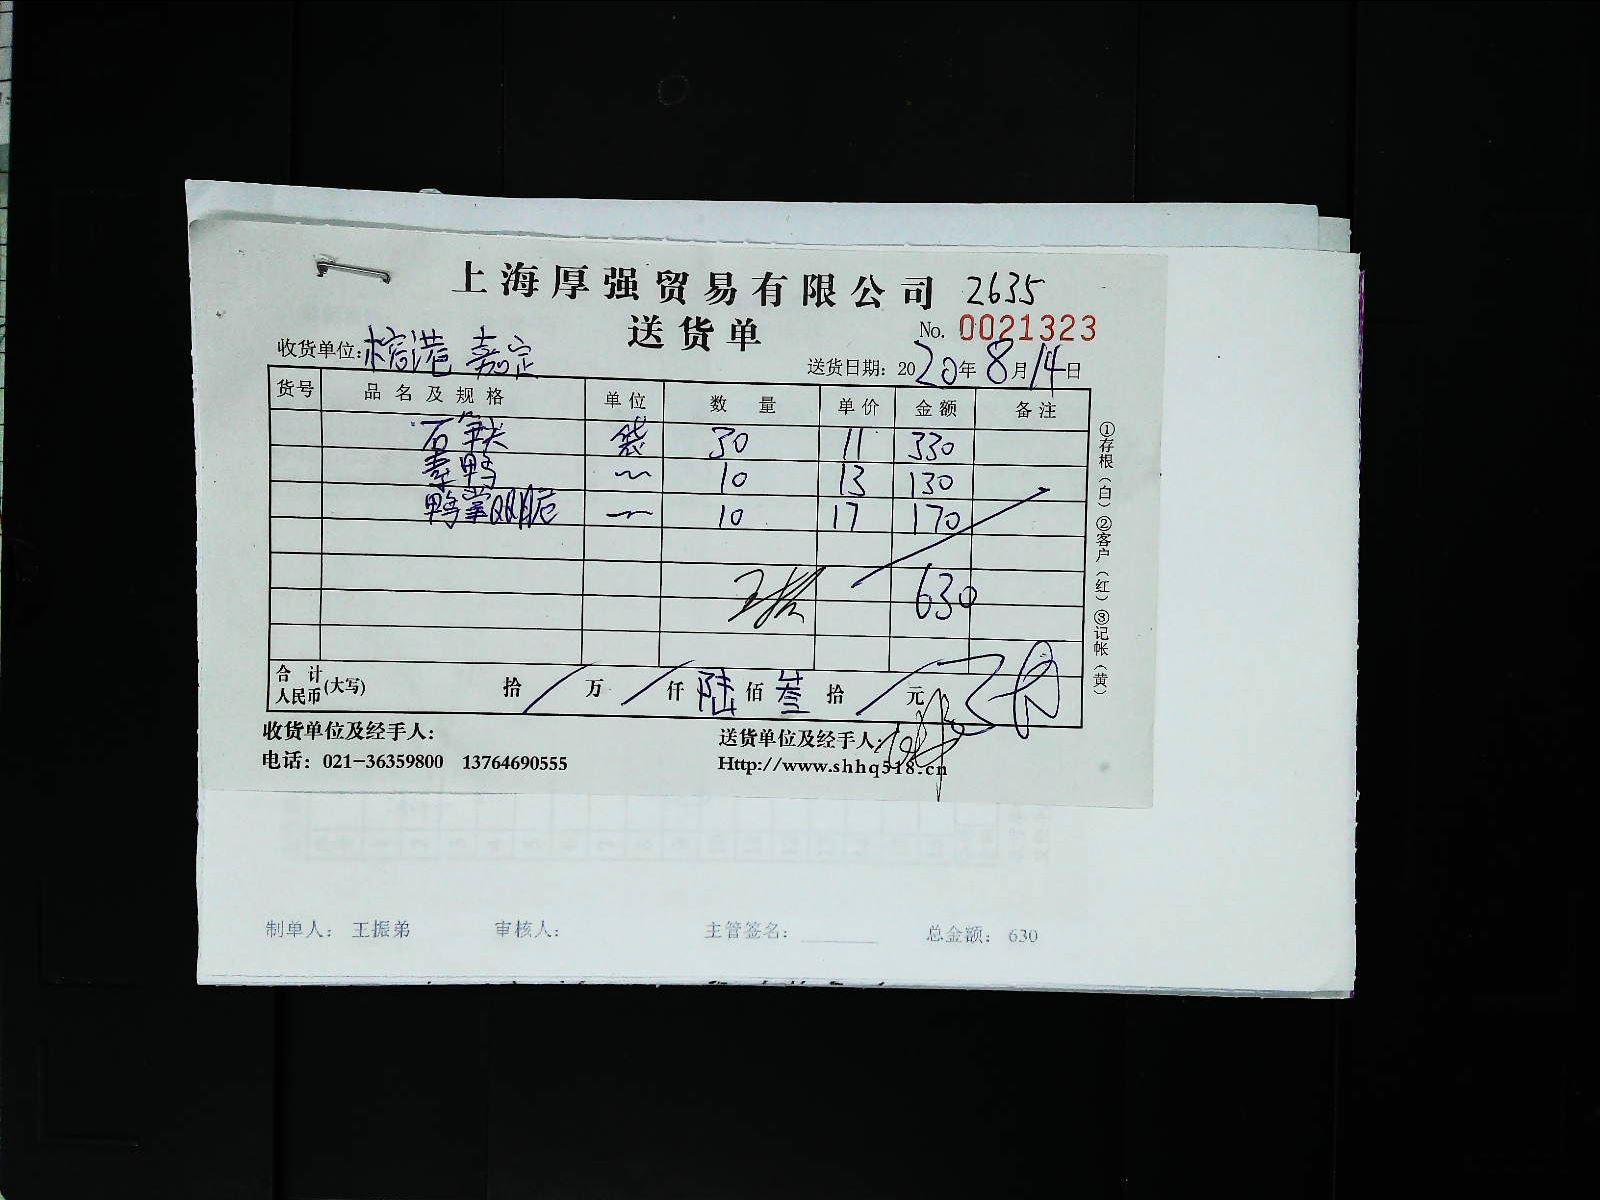 上海厚强贸易有限公司 2635
送货单 No. 0021323
收货单位: 榕港 嘉定 送货日期: 2020年8月14日
货号 品名及规格 单位 数量 单价 金额 备注
袋 30 11 330
素鸭 〃 10 13 130
鸭掌 〃 10 17 170
630
合计人民币(大写) 拾 / 万 / 仟 陆 佰 叁 拾 / 元
收货单位及经手人: 送货单位及经手人:
电话: 021-36359800 13764690555 Http://www.shhq518.cn
①存根(白)②客户(红)③记帐(黄)
制单人: 王振弟 审核人: 主管签名: ______ 总金额: 630